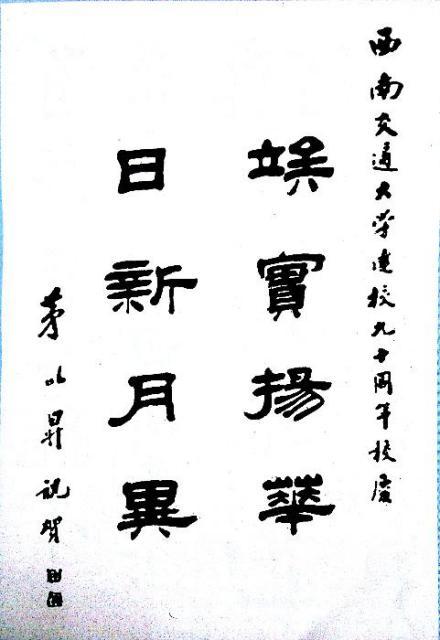 西南交通大学建校九十周年校慶
竢實揚華
日新月異
茅以昇祝賀